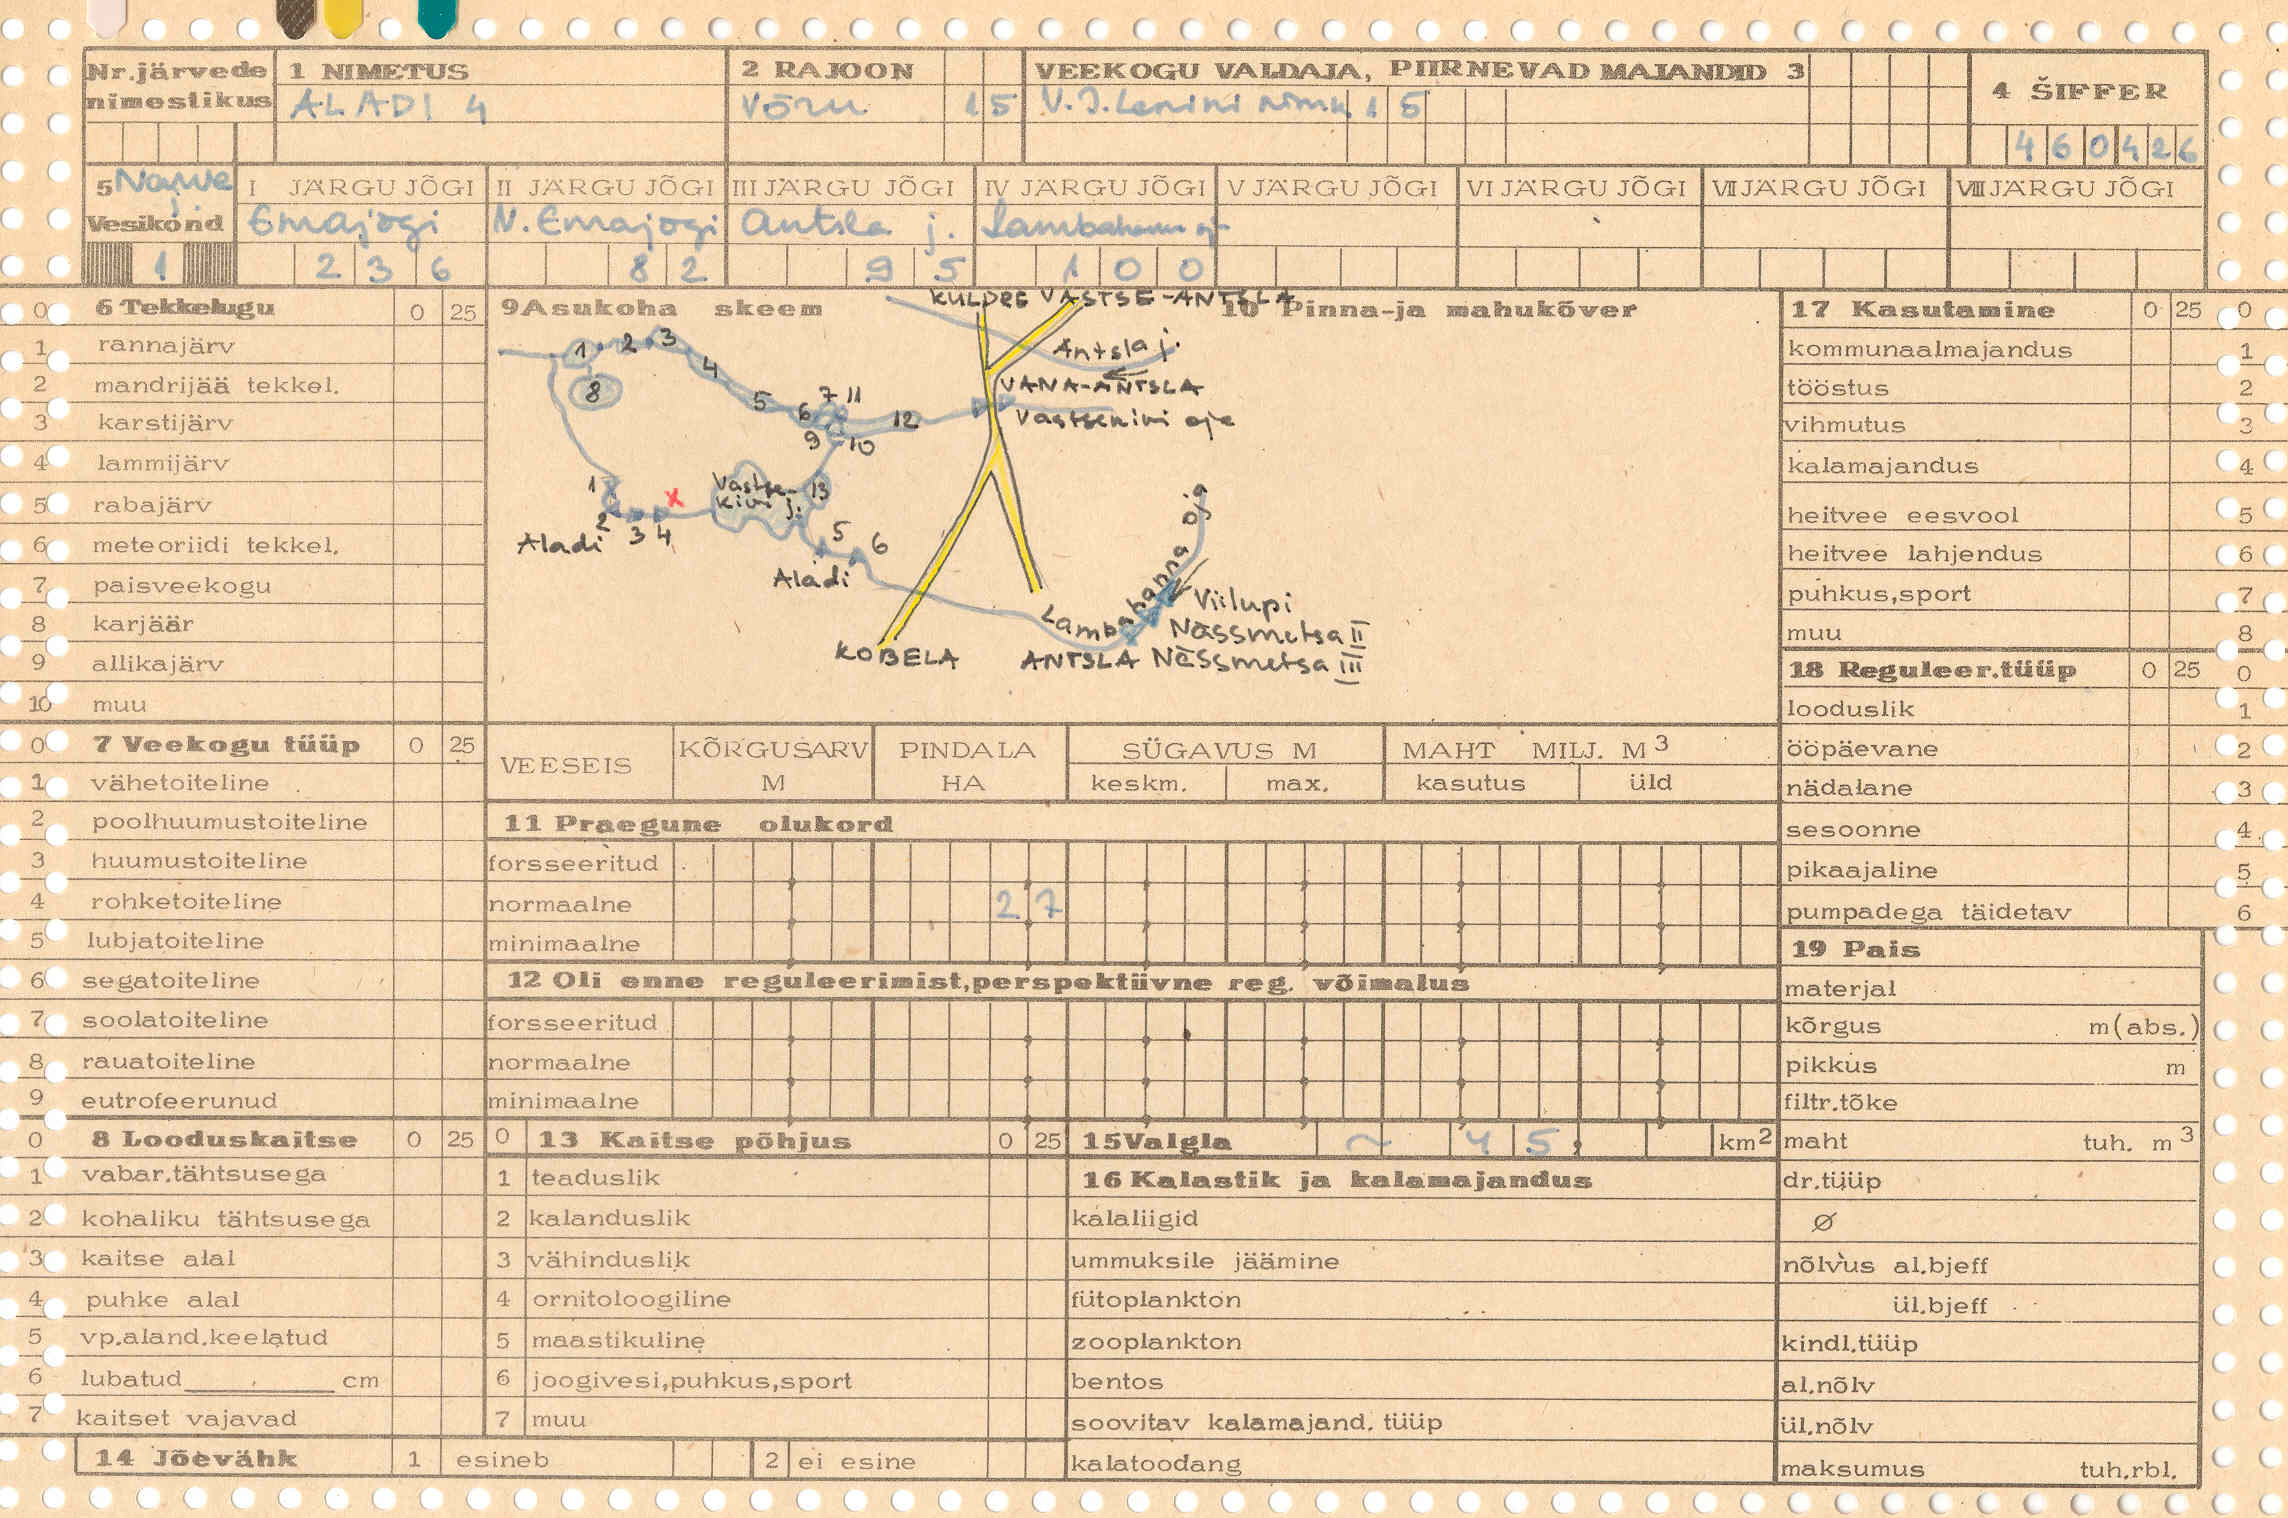 Nr.järvede nimestikus
1 NIMETUS
ALADI 4
2 RAJOON
Võru 15
VEEKOGU VALDAJA, PIIRNEVAD MAJANDID 3
V.I.Lenini nim.k 15
4 ŠIFFER
460426
5 Narva j.
Vesikond
1
I JÄRGU JÕGI
Emajõgi
236
II JÄRGU JÕGI
V. Emajõgi
82
III JÄRGU JÕGI
Antsla j.
95
IV JÄRGU JÕGI
Lambahanna oj
100
V JÄRGU JÕGI
VI JÄRGU JÕGI
VII JÄRGU JÕGI
VIII JÄRGU JÕGI
0 6 Tekkelugu 0 25
1 rannajärv
2 mandrijää tekkel.
3 karstijärv
4 lammijärv
5 rabajärv
6 meteoriidi tekkel.
7 paisveekogu
8 karjäär
9 allikajärv
10 muu
0 7 Veekogu tüüp 0 25
1 vähetoiteline
2 poolhuumustoiteline
3 huumustoiteline
4 rohketoiteline
5 lubjatoiteline
6 segatoiteline
7 soolatoiteline
8 rauatoiteline
9 eutrofeerunud
0 8 Looduskaitse 0 25
1 vabar.tähtsusega
2 kohaliku tähtsusega
3 kaitse alal
4 puhke alal
5 vp.aland.keelatud
6 lubatud cm
7 kaitset vajavad
14 Jõevähk 1 esineb 2 ei esine
9 Asukoha skeem
10 Pinna-ja mahukõver
KULDRE VASTSE-ANTSLA
Antsla j.
VANA-ANTSLA
Vastsekivi oja
1 2 3
4
8
5 6 7 11
12
9 10
1
Vastse-
kivi j.
13
x
2 3 4
Aladi
5 6
Aladi
Lambahanna oja
Viilupi
Nässmetsa II
KOBELA
ANTSLA Nässmetsa III
VEESEIS
KÕRGUSARV M
PINDALA HA
SÜGAVUS M
keskm. max.
MAHT MILJ. M3
kasutus üld
11 Praegune olukord
forsseeritud
normaalne 2 7
minimaalne
12 Oli enne reguleerimist,perspektiivne reg. võimalus
forsseeritud
normaalne
minimaalne
0 13 Kaitse põhjus 0 25
1 teaduslik
2 kalanduslik
3 vähinduslik
4 ornitoloogiline
5 maastikuline
6 joogivesi,puhkus,sport
7 muu
15 Valgla ~ 45, km2
16 Kalastik ja kalamajandus
kalaliigid
ummuksile jäämine
fütoplankton
zooplankton
bentos
soovitav kalamajand. tüüp
kalatoodang
17 Kasutamine 0 25 0
kommunaalmajandus 1
tööstus 2
vihmutus 3
kalamajandus 4
heitvee eesvool 5
heitvee lahjendus 6
puhkus,sport 7
muu 8
18 Reguleer.tüüp 0 25 0
looduslik 1
ööpäevane 2
nädalane 3
sesoonne 4
pikaajaline 5
pumpadega täidetav 6
19 Pais
materjal
kõrgus m(abs.)
pikkus m
filtr.tõke
maht tuh. m3
dr.tüüp
Ø
nõlvus al.bjeff
ül.bjeff
kindl.tüüp
al.nõlv
ül.nõlv
maksumus tuh.rbl.